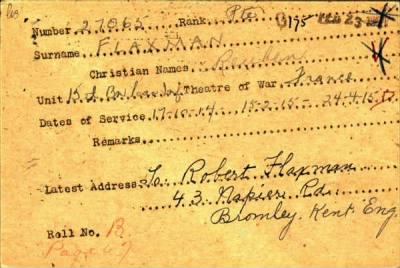 Number 27065 Rank Pte
Surname FLAXMAN
Christian Names Reuben
Unit 15th Can. Inf. Theatre of War France
Dates of Service 17-10-14 15-2-15 - 24-4-15
Remarks
Latest Address: To Robert Flaxman
43 Napier Rd.
Bromley. Kent Eng.
Roll No. B
Page 47